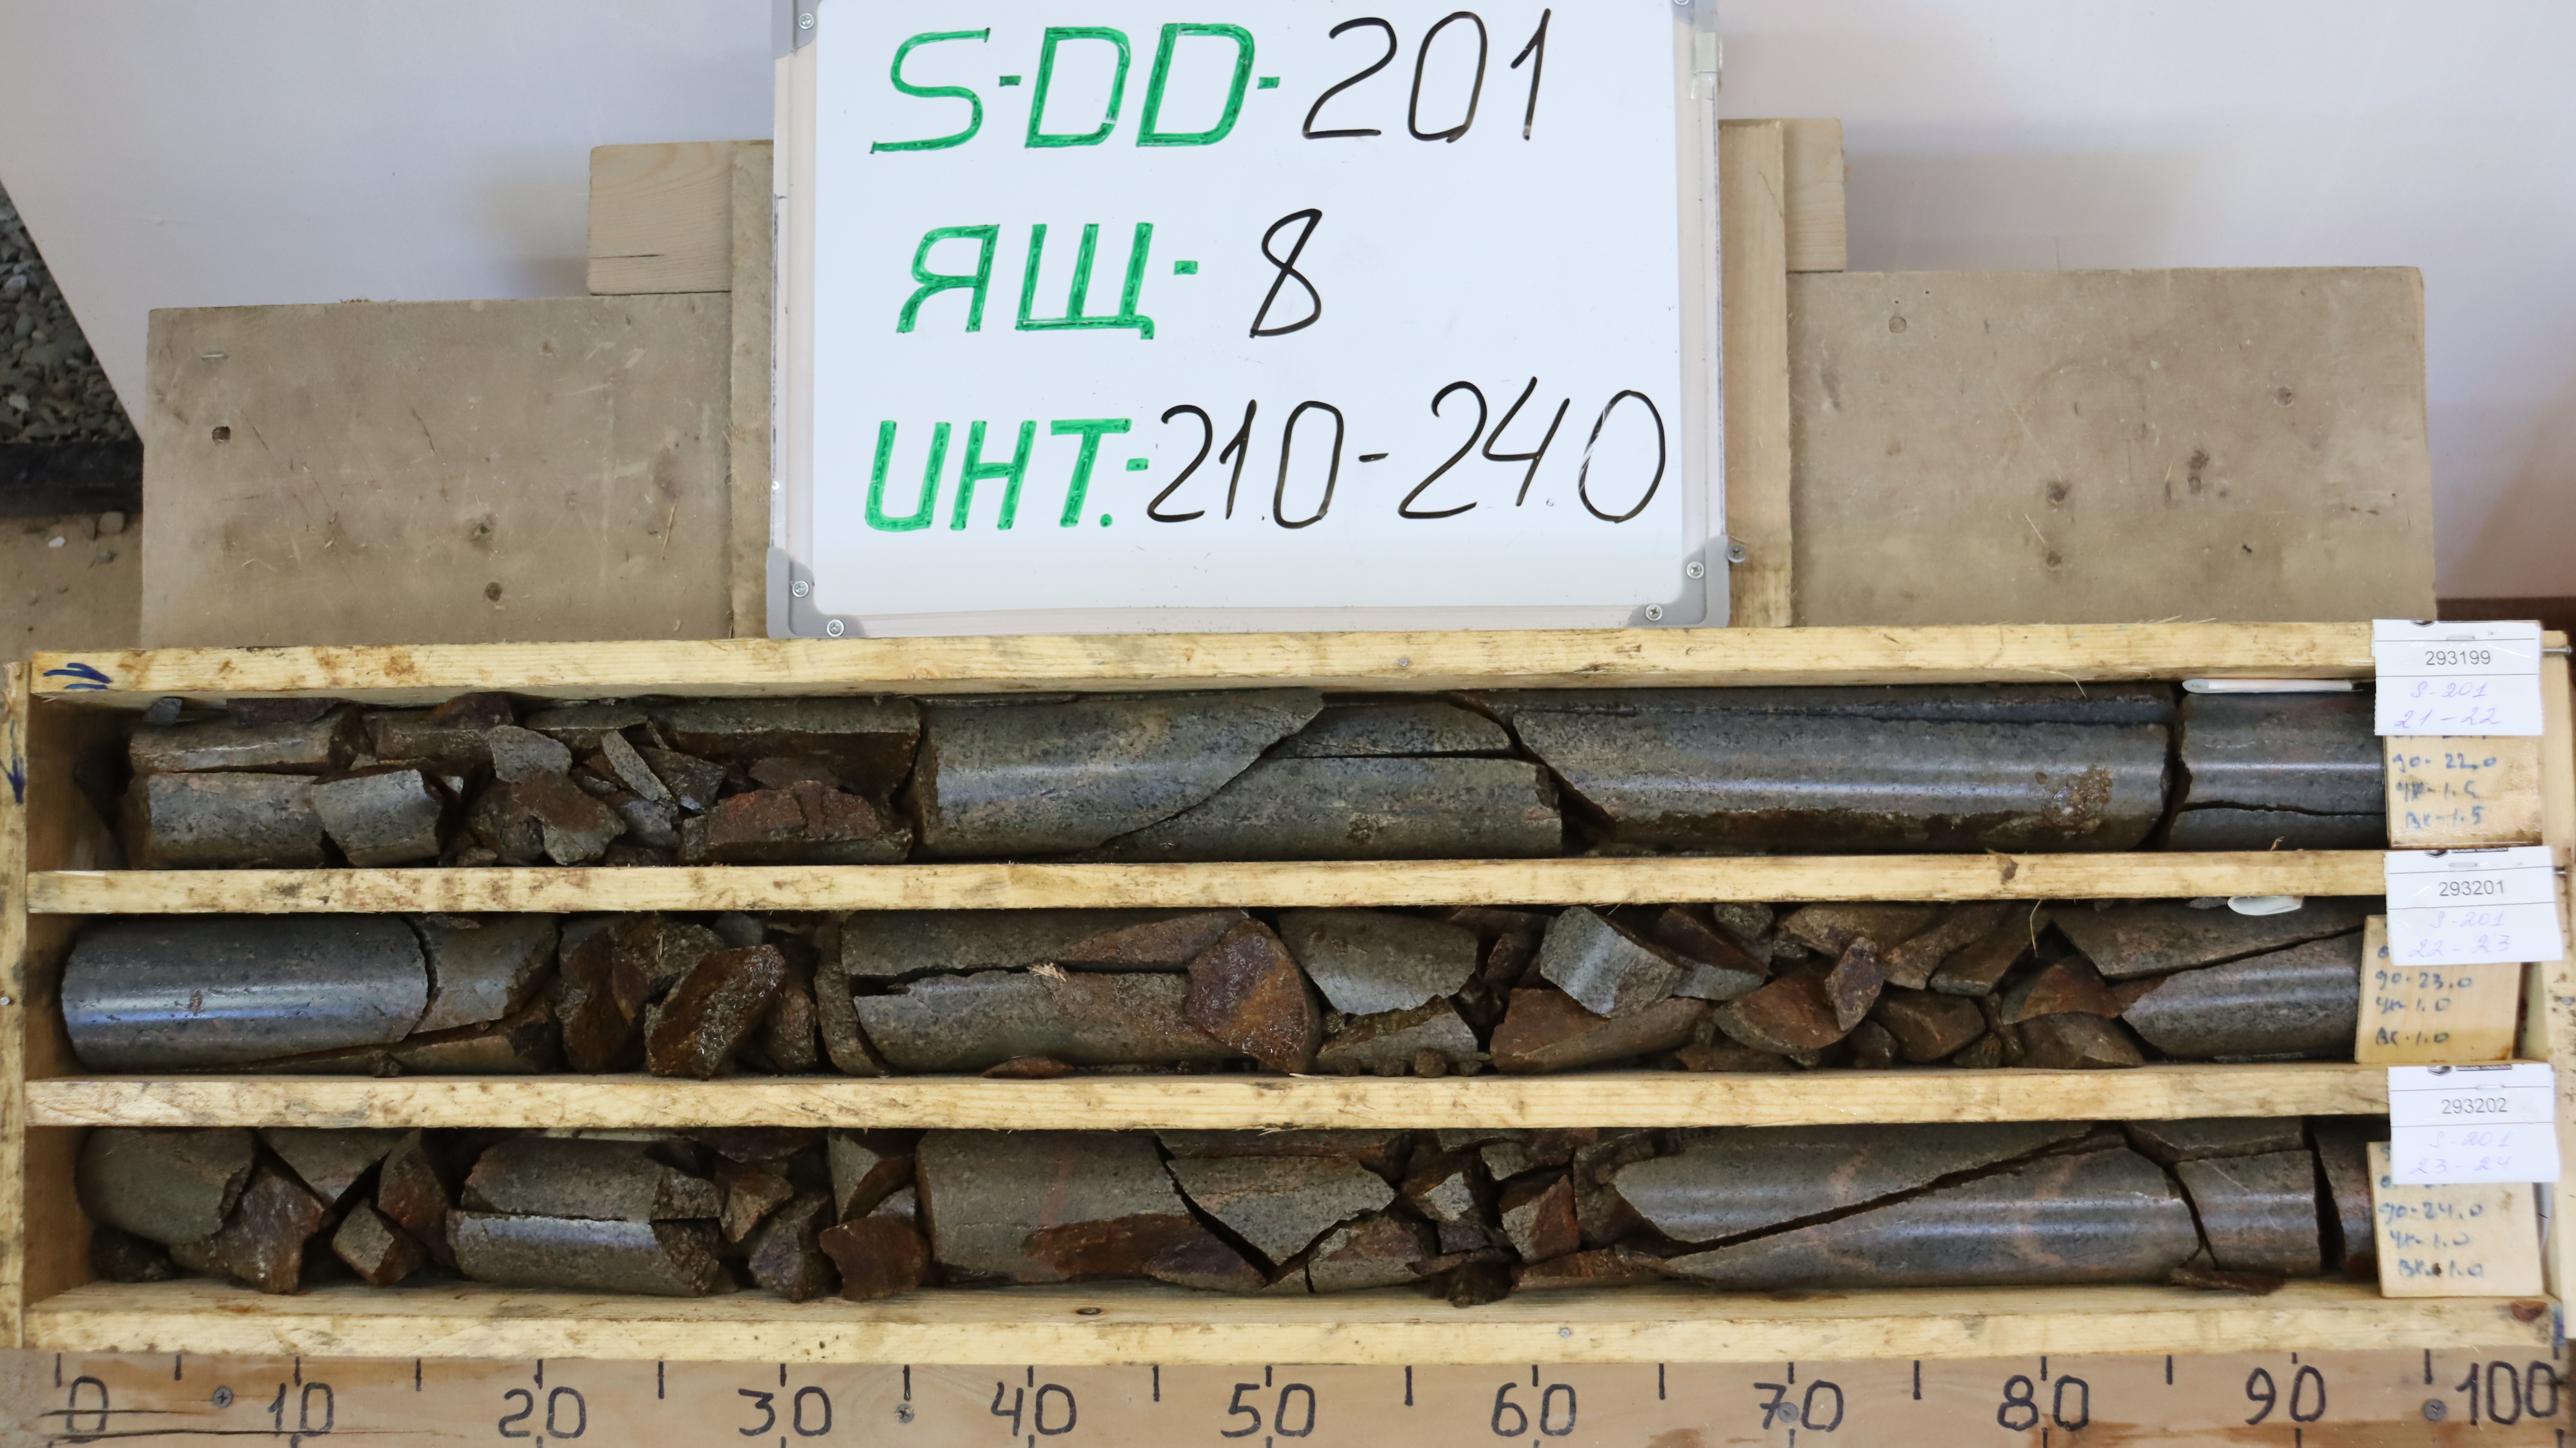 S-DD-201
ЯЩ- 8
ИНТ.-21.0-24.0
293199
S-201
21-22
до-22.0
ук-1.5
Вк-1.5
293201
S-201
22-23
до-23.0
ук-1.0
Вк-1.0
293202
S-201
23-24
до-24.0
ук-1.0
Вк-1.0
0 10 20 30 40 50 60 70 80 90 100